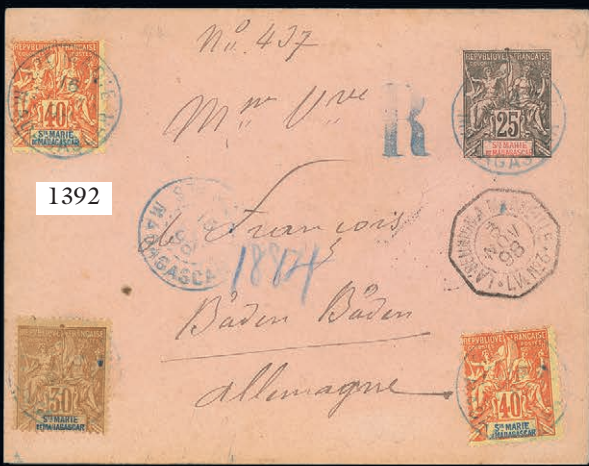 No. 437
REPUBLIQUE FRANÇAISE
40
STE MARIE
DE MADAGASCAR
REPUBLIQUE FRANÇAISE
25
STE MARIE
DE MADAGASCAR
R
Mme Vve
1392
MADAGASCAR
LA REUNION A MARSEILLE
3
NOV
98
L.V. No 2
le François
1884
Båden Båden
Allemagne
REPUBLIQUE FRANÇAISE
30
STE MARIE
DE MADAGASCAR
REPUBLIQUE FRANÇAISE
40
STE MARIE
DE MADAGASCAR